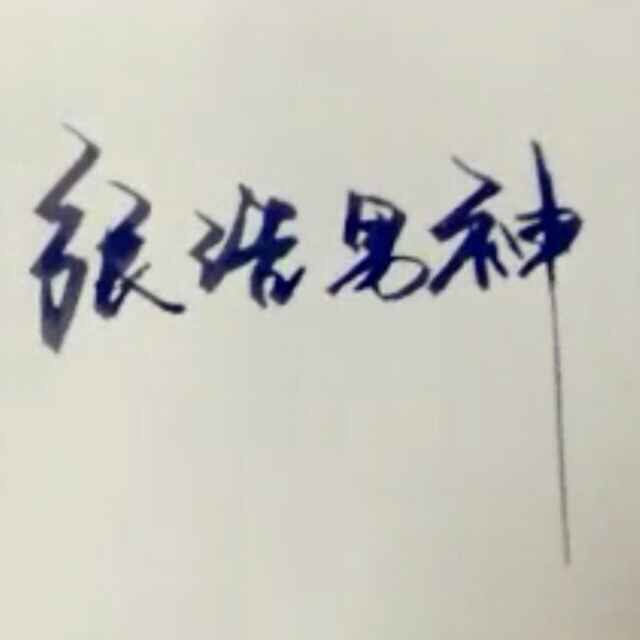 张浩男神